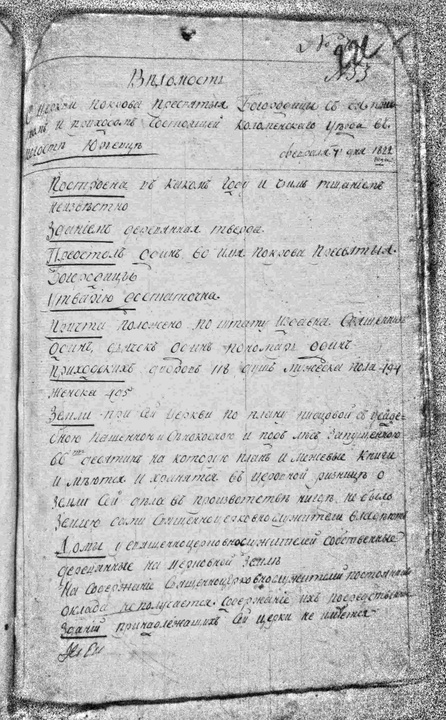 № 53
Вѣдомость
О церкви Покрова Пресвятыя Богородицы съ
и приходомъ состоящей Коломенскаго уѣзда въ
погостѣ
февраля дня 1822 года
Построена въ какомъ году и чьимъ тщаніемъ
неизвѣстно
Зданіемъ деревянная тверда
Престолъ одинъ во имя Покрова Пресвятыя
Богородицы
Утварію достаточна
Причта положено по штату издавна Священникъ
одинъ, дьячекъ одинъ пономарь одинъ
Приходскихъ дворовъ 118 душъ мужеска пола 494
женска 495
Земли при сей церкви по плану писцовой съ
пашенной и сѣнокосной и подъ лѣсъ запущенною
66 десятинъ на которую планъ и межевые книги
имѣются и хранятся въ церковной ризницѣ о
земли сей дѣла въ производствѣ нигдѣ не было
Землею сами священноцерковнослужители владѣютъ
Домы у священноцерковнослужителей собственные
деревянные на церковной землѣ
На содержаніе священноцерковнослужителей постояннаго
оклада не получается содержаніе ихъ посредственно
Зданій принадлежащихъ сей церкви не имѣется